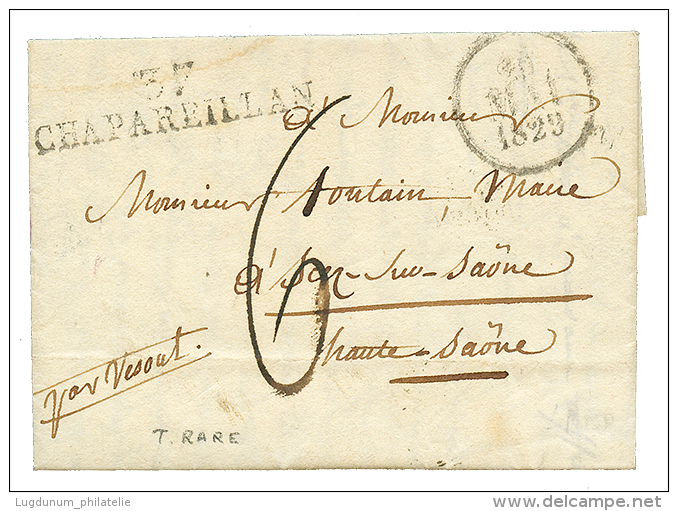 37
CHAPAREILLAN
MAI
1829
à Monsieur
Monsieur Maire
à Scey-sur-Saône
haute-Saône
6
par Vesoul.
T. RARE
Lugdunum_philatelie
delcampe.net